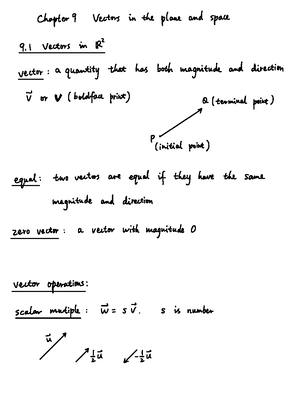 Chapter 9 Vectors in the plane and space
9.1 Vectors in ℝ²
vector: a quantity that has both magnitude and direction
v⃗ or v (boldface point)
Q (terminal point)
P
(initial point)
equal: two vectors are equal if they have the same
magnitude and direction
zero vector: a vector with magnitude 0
vector operations:
scalar multiple: w⃗ = s v⃗. s is number
u⃗
½u⃗
-½u⃗